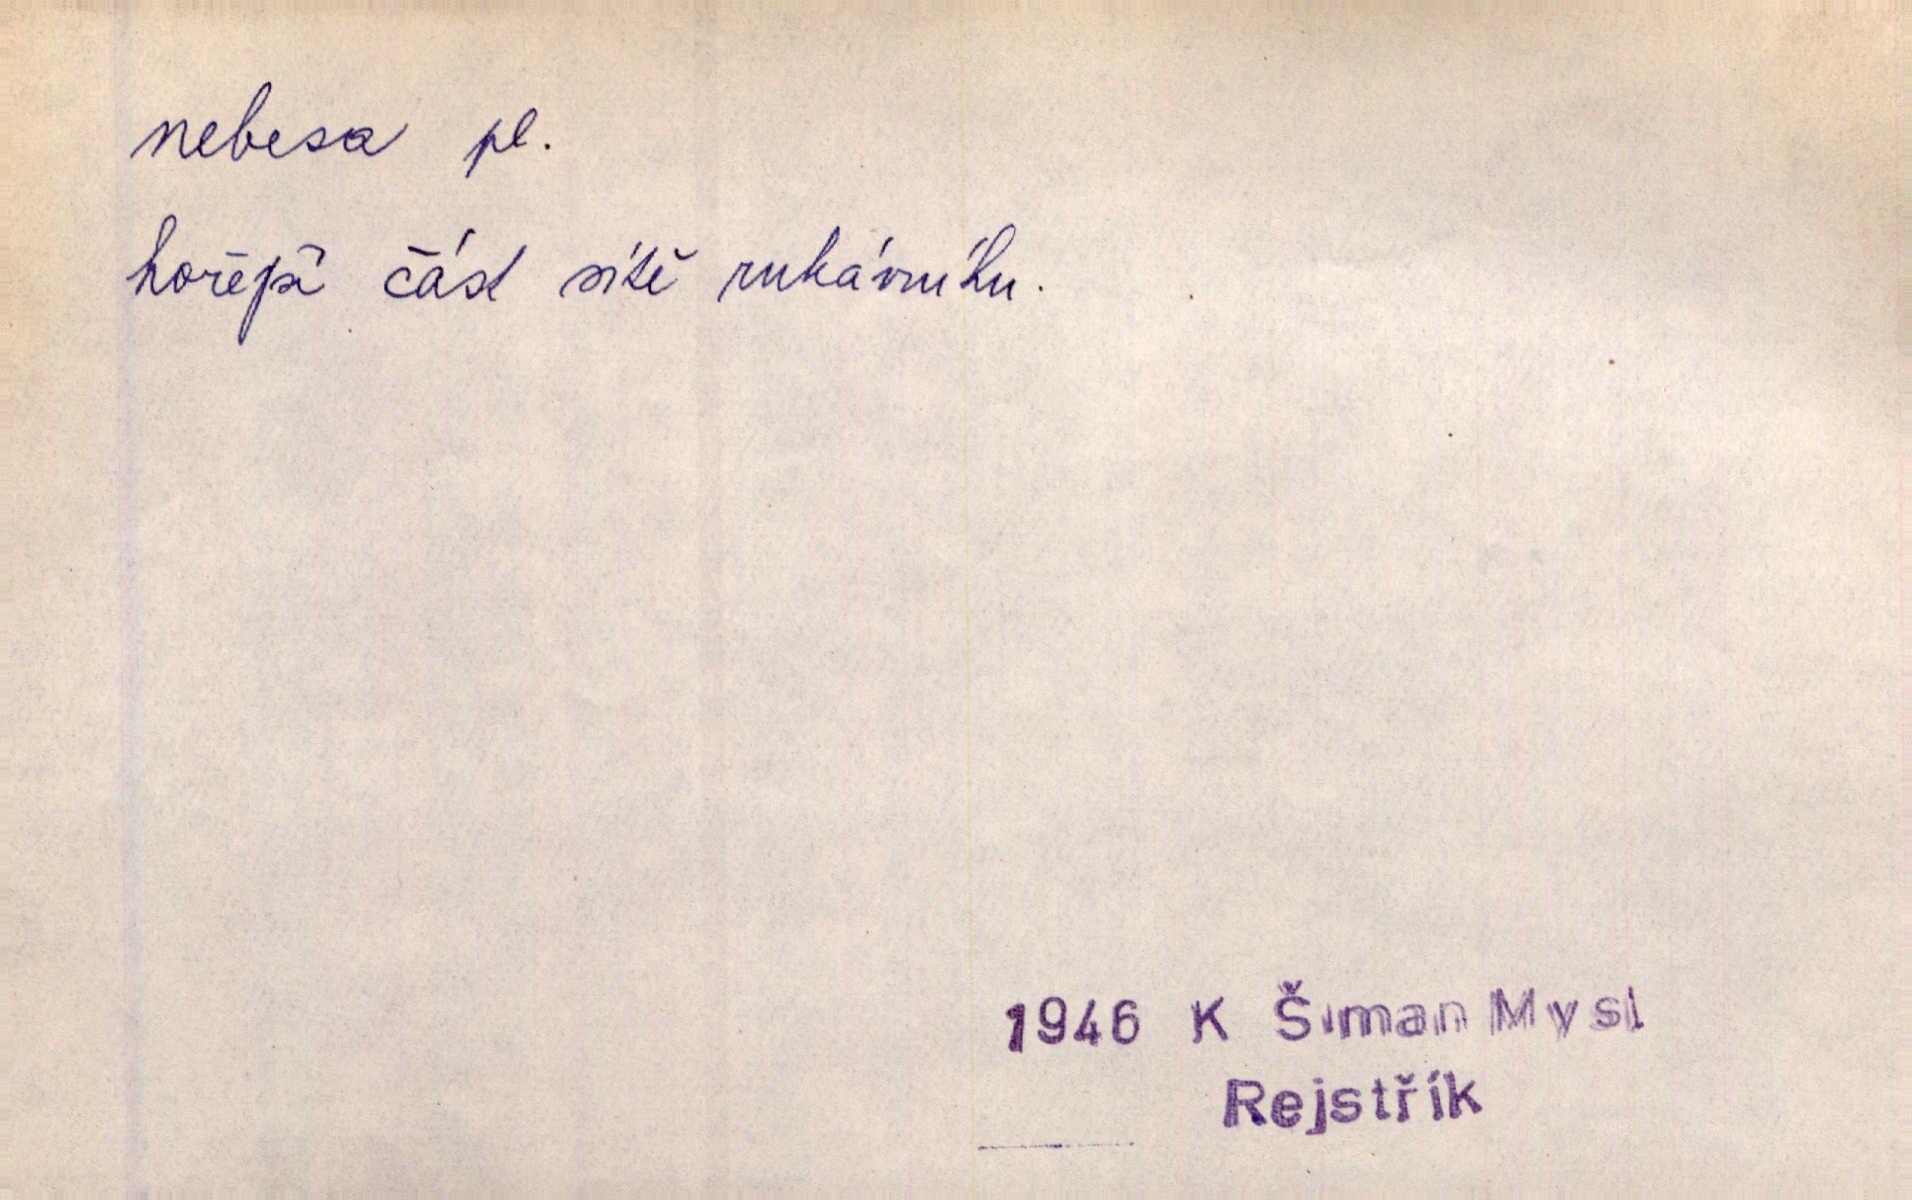 nebesa pl.
hořejší část sítě rukávníku.
1946 K Šiman Mysl
Rejstřík